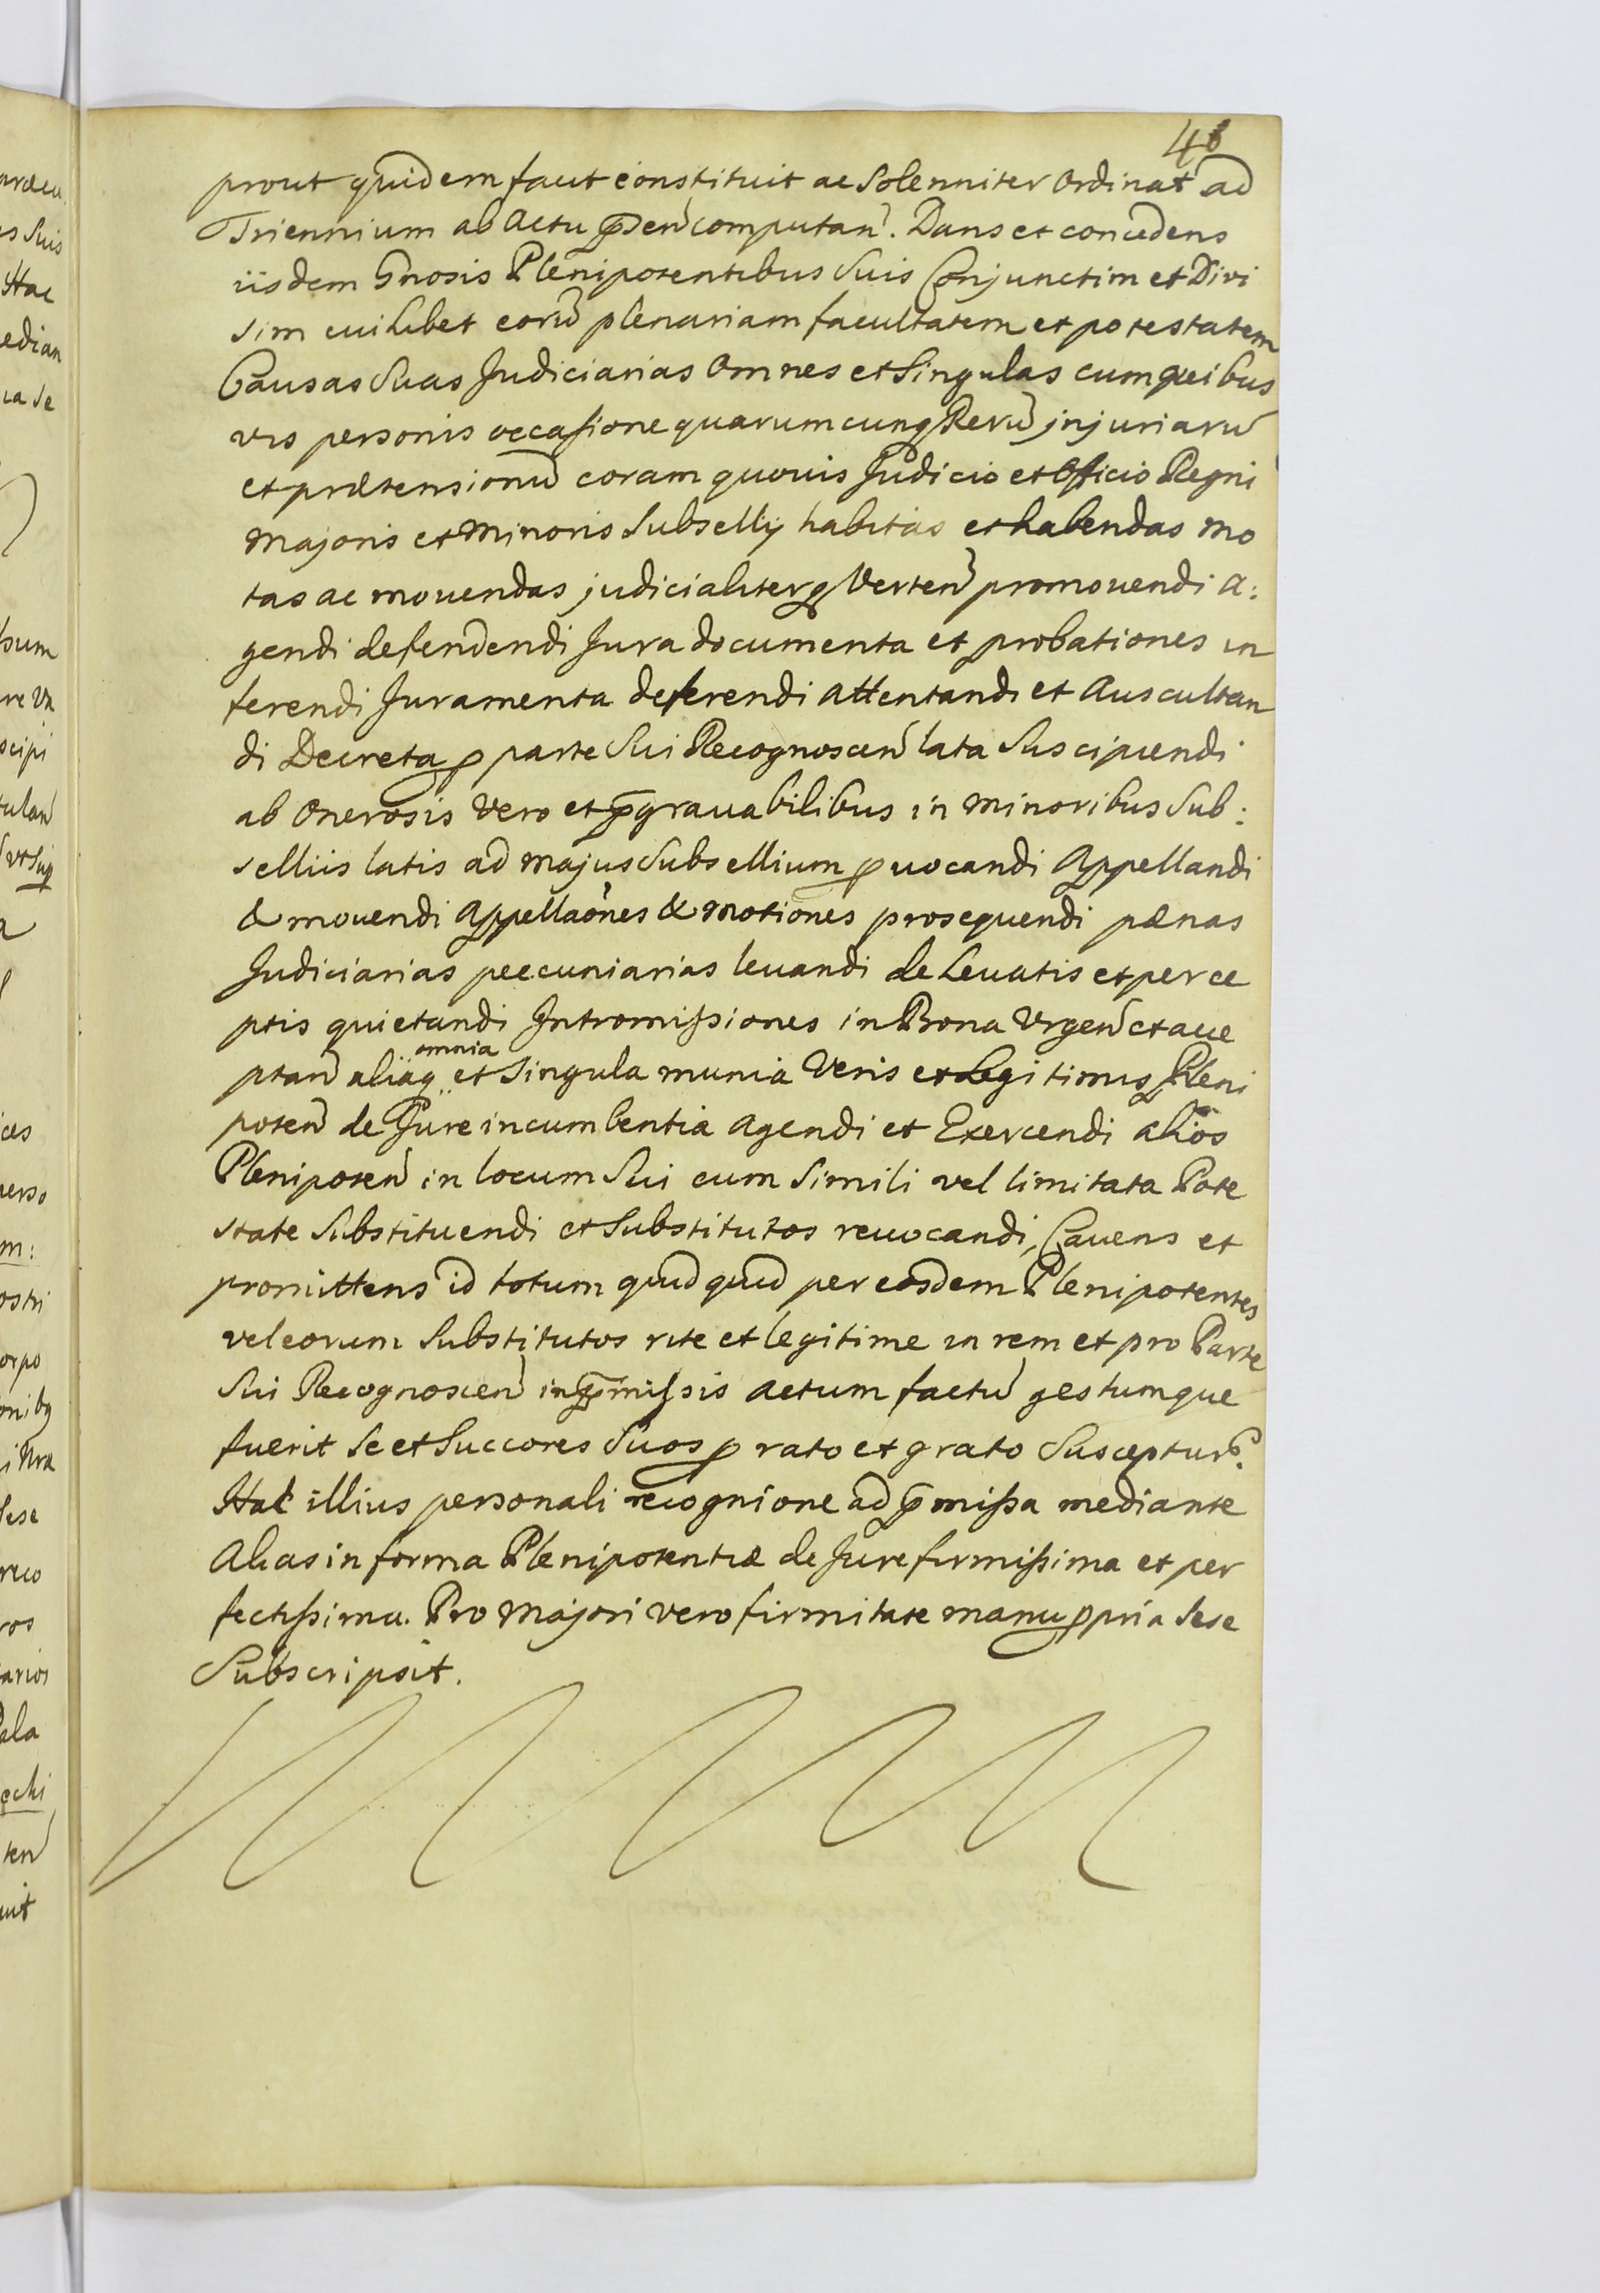 46
prout quidem facit constituit ac Solenniter Ordinat ad
Triennium ab Actu p̄sen̄ computan̄. Dans et concedens
iisdem Gnosis Plenipotentibus Suis Conjunctim et Divi
sim cuilibet eorū plenariam facultatem et potestatem
Causas Suas Judiciarias Omnes et Singulas cum quibus
vis personis occasione quarumcunq Rerū injuriarū
et prætensionū coram quovis Judicio et Officio Regni
Majoris et Minoris Subsellij habitas et habendas mo
tas ac movendas judicialiterq Verten̄ promovendi a:
gendi defendendi Jura documenta et probationes in
ferendi Juramenta deferendi attentandi et Auscultan
di Decreta p parte Sui Recognoscen̄ lata Suscipiendi
ab Onerosis Vero et p̄gravabilibus in Minoribus Sub:
selliis latis ad Majus Subsellium p uocandi Appellandi
& movendi Appellaōnes & Motiones prosequendi pænas
Judiciarias peecuniarias levandi de Levatis et perce
ptis quietandi Intromissiones in Bona Urgen̄ et acce
ptan̄ aliaq omnia et Singula munia Veris et Legitimis Pleni
poten̄ de Jure incumbentia Agendi et Exercendi alios
Plenipoten̄ in locum Sui cum Simili vel limitata Pote
state Substituendi et Substitutos revocandi, Cavens et
promittens id totum quidquid per eosdem Plenipotentes
vel eorum Substitutos rite et legitime in rem et pro Parte
Sui Recognoscen̄ in p̄missis actum factū gestumque
fuerit Se et Succores Suos p rato et grato Suscepturꝰ.
Hac illius personali recognione ad p̄missa mediante
Alias in forma Plenipotentiæ de Jure firmissima et per
fectissima. Pro Majori vero firmitate manu ppria Sese
Subscripsit.